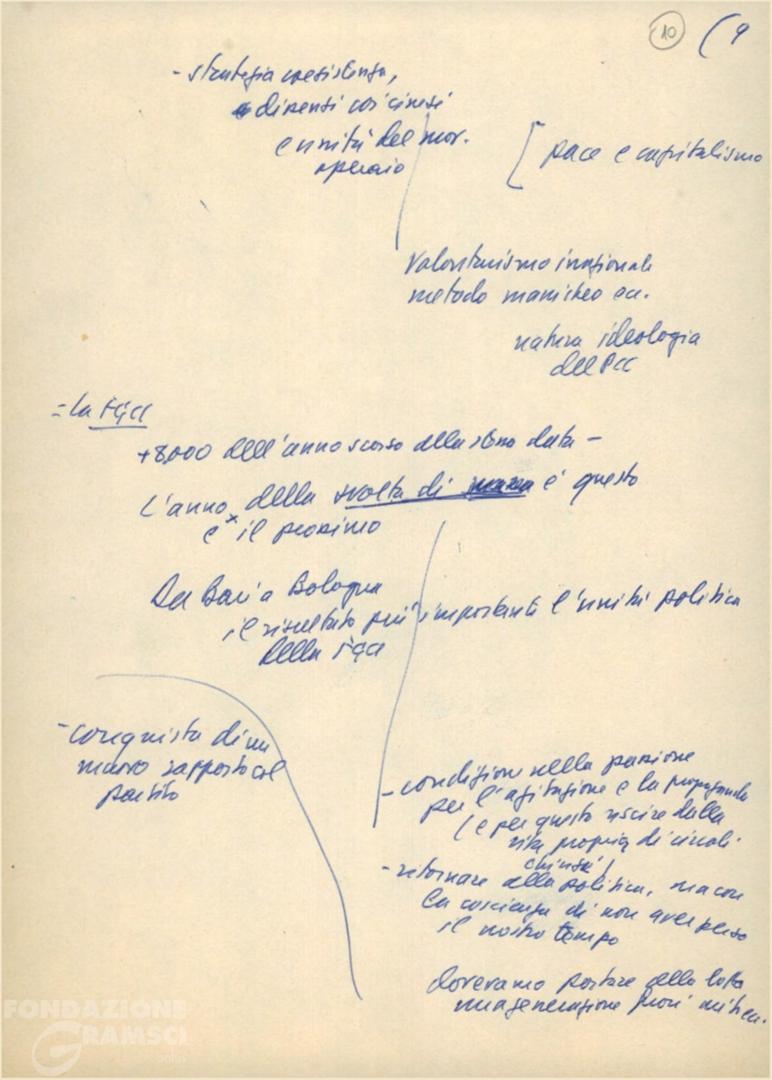 10 ( 9
- strategia coesistenza,
dissensi coi cinesi
e unità del mov.
operaio
[ pace e capitalismo
Volontarismo irrazionale
metodo manicheo ecc.
natura ideologia
del PCC
= la FGCI
+8.000 dell'anno scorso alla stessa data -
L'anno della svolta di è questo
e il prossimo
Da Bari a Bologna
il risultato più importante l'unità politica
della FGCI
- conquista di un
nuovo rapporto col
partito
- condizione nella
per l'agitazione e la propaganda
(e per questo uscire dalla
vita propria di circoli
chiusi)
- ritornare alla politica, ma con
la coscienza di non aver perso
il nostro tempo
dovevamo portare alla lotta
una generazione
FONDAZIONE
GRAMSCI